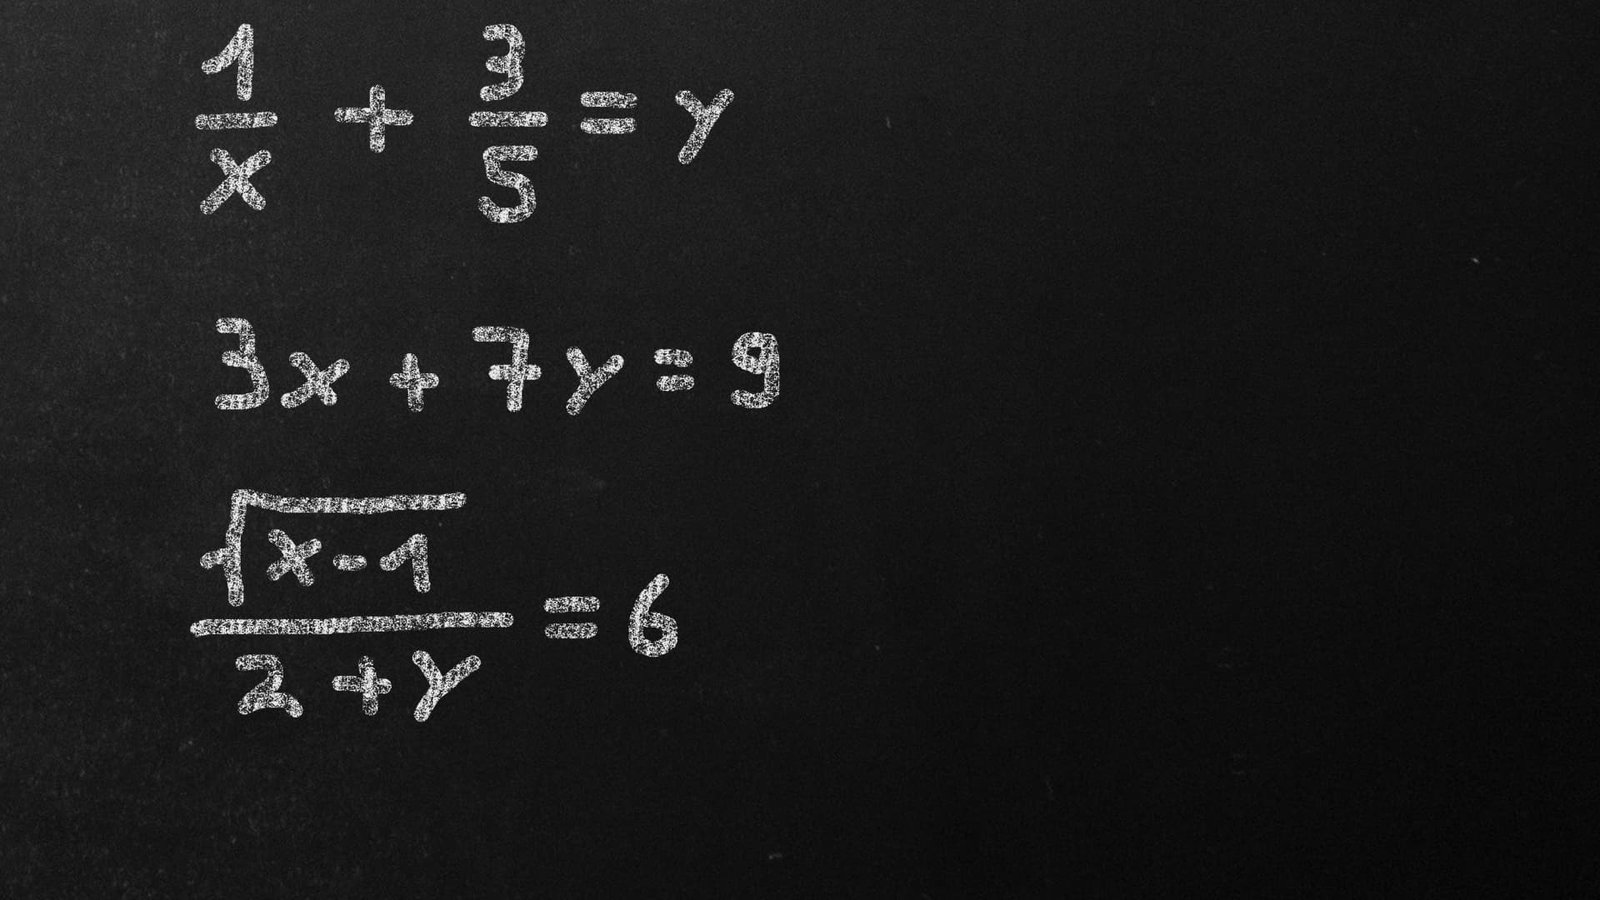 1/x + 3/5 = y
3x + 7y = 9
√(x-1)/(2+y) = 6